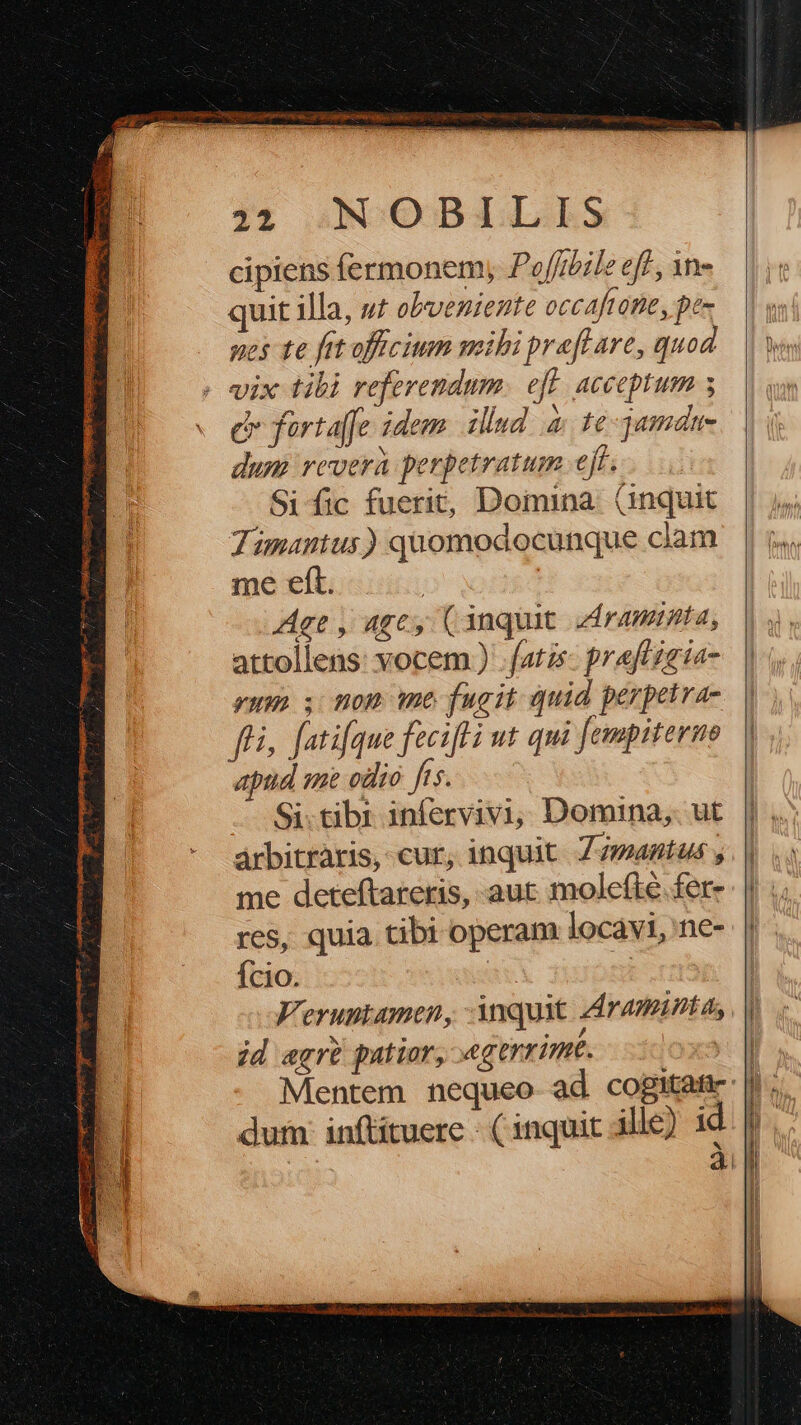 22 NOBILIS
cipiens ſermonem, Poſſibile eſt, in-
quit illa, ut obveniente occaſione, pe-
nes te ſit officium mihi præſtare, quod
vix tibi referendum eſt acceptum ;
& fortaſſe idem illud à te jamdu-
dum reverà perpetratum eſt.
Si ſic fuerit, Domina (inquit
Timantus) quomodocunque clam
me eſt.
Age, age, (inquit Araminta,
attollens vocem) ſatis præſtigia-
rum ; non me fugit quid perpetra-
ſti, ſatiſque feciſti ut qui ſempiterno
apud me odio ſis.
Si tibi inſervivi, Domina, ut
arbitraris, cur, inquit Timantus,
me deteſtareris, aut moleſtè fer-
res, quia tibi operam locavi, ne-
ſcio.
Veruntamen, inquit Araminta,
id ægrè patior, ægerrimè.
Mentem nequeo ad cogitan-
dum inſtituere (inquit ille) id
à